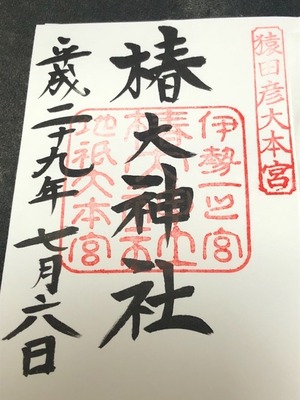 猿田彦大本宮
伊勢一之宮
椿大神社
地祇大本宮
椿大神社
平成二十九年七月六日